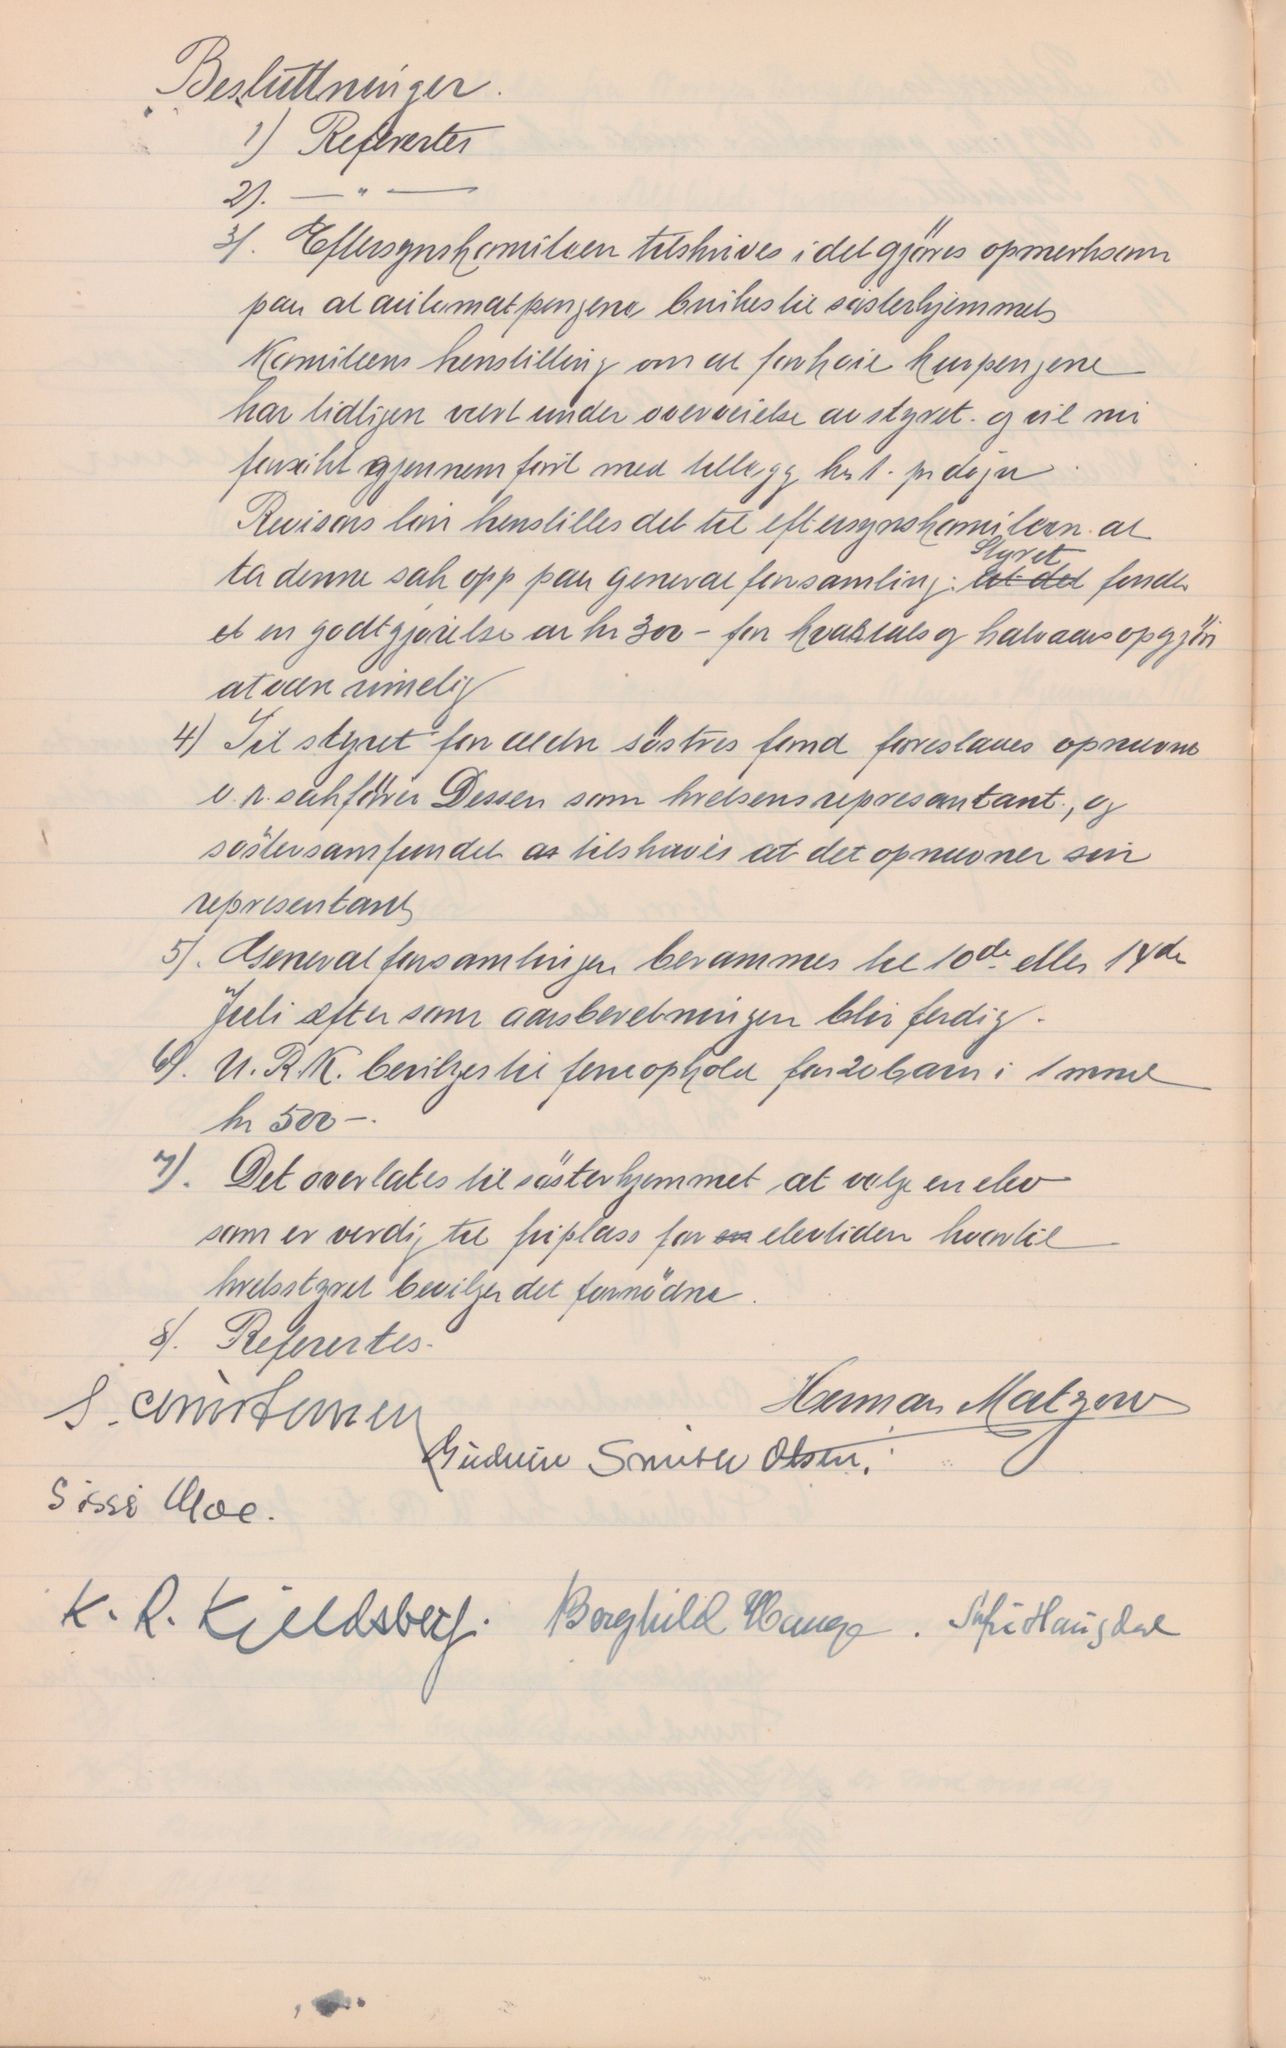 Besluttninger.
1) Refererertes
2). — " —
3). Eftersynskomiteen tilskrives i det gjöres opmerksom
paa at automatpengene brukes til sösterhjemmet
Komiteens henstilling om at forhöie kurpengene
har tidligen vært under overveielse av styret. og vil nu
forsökt gjennemfört med tillegg kr 1.- pr døgn.
Revisors lön henstilles det til eftersynskomiteen at
ta denne sak opp paa generalforsamling: Styret fonder
et en godtgjörelse av kr 300- for kvartals og halvaarsopgjör
at være rimelig
4) Til styret for ældre söstres fond foreslaaes opnevne
o.r.sakförer Dessen som kredsens representant., og
söstersamfundet tilskrives at det opnevner sin
representant
5). Generalforsamlingen berammes til 10de eller 14de
Juli efter som aarsberetningen blir ferdig.
6). U.R.K. bevilges til ferieophold for 20 barn i 1 mnd
kr 500-.
7). Det overlates til sösterhjemmet at velge en elev
som er verdig til friplass for elevtiden hvortil
kredsstyret bevilger det fornödne.
8). Refererertes.
Herman Matzow
Gudrun Smith Olsen.
Sissi Moe.
K. R. Kjeldsberg. Borghild Hauge.